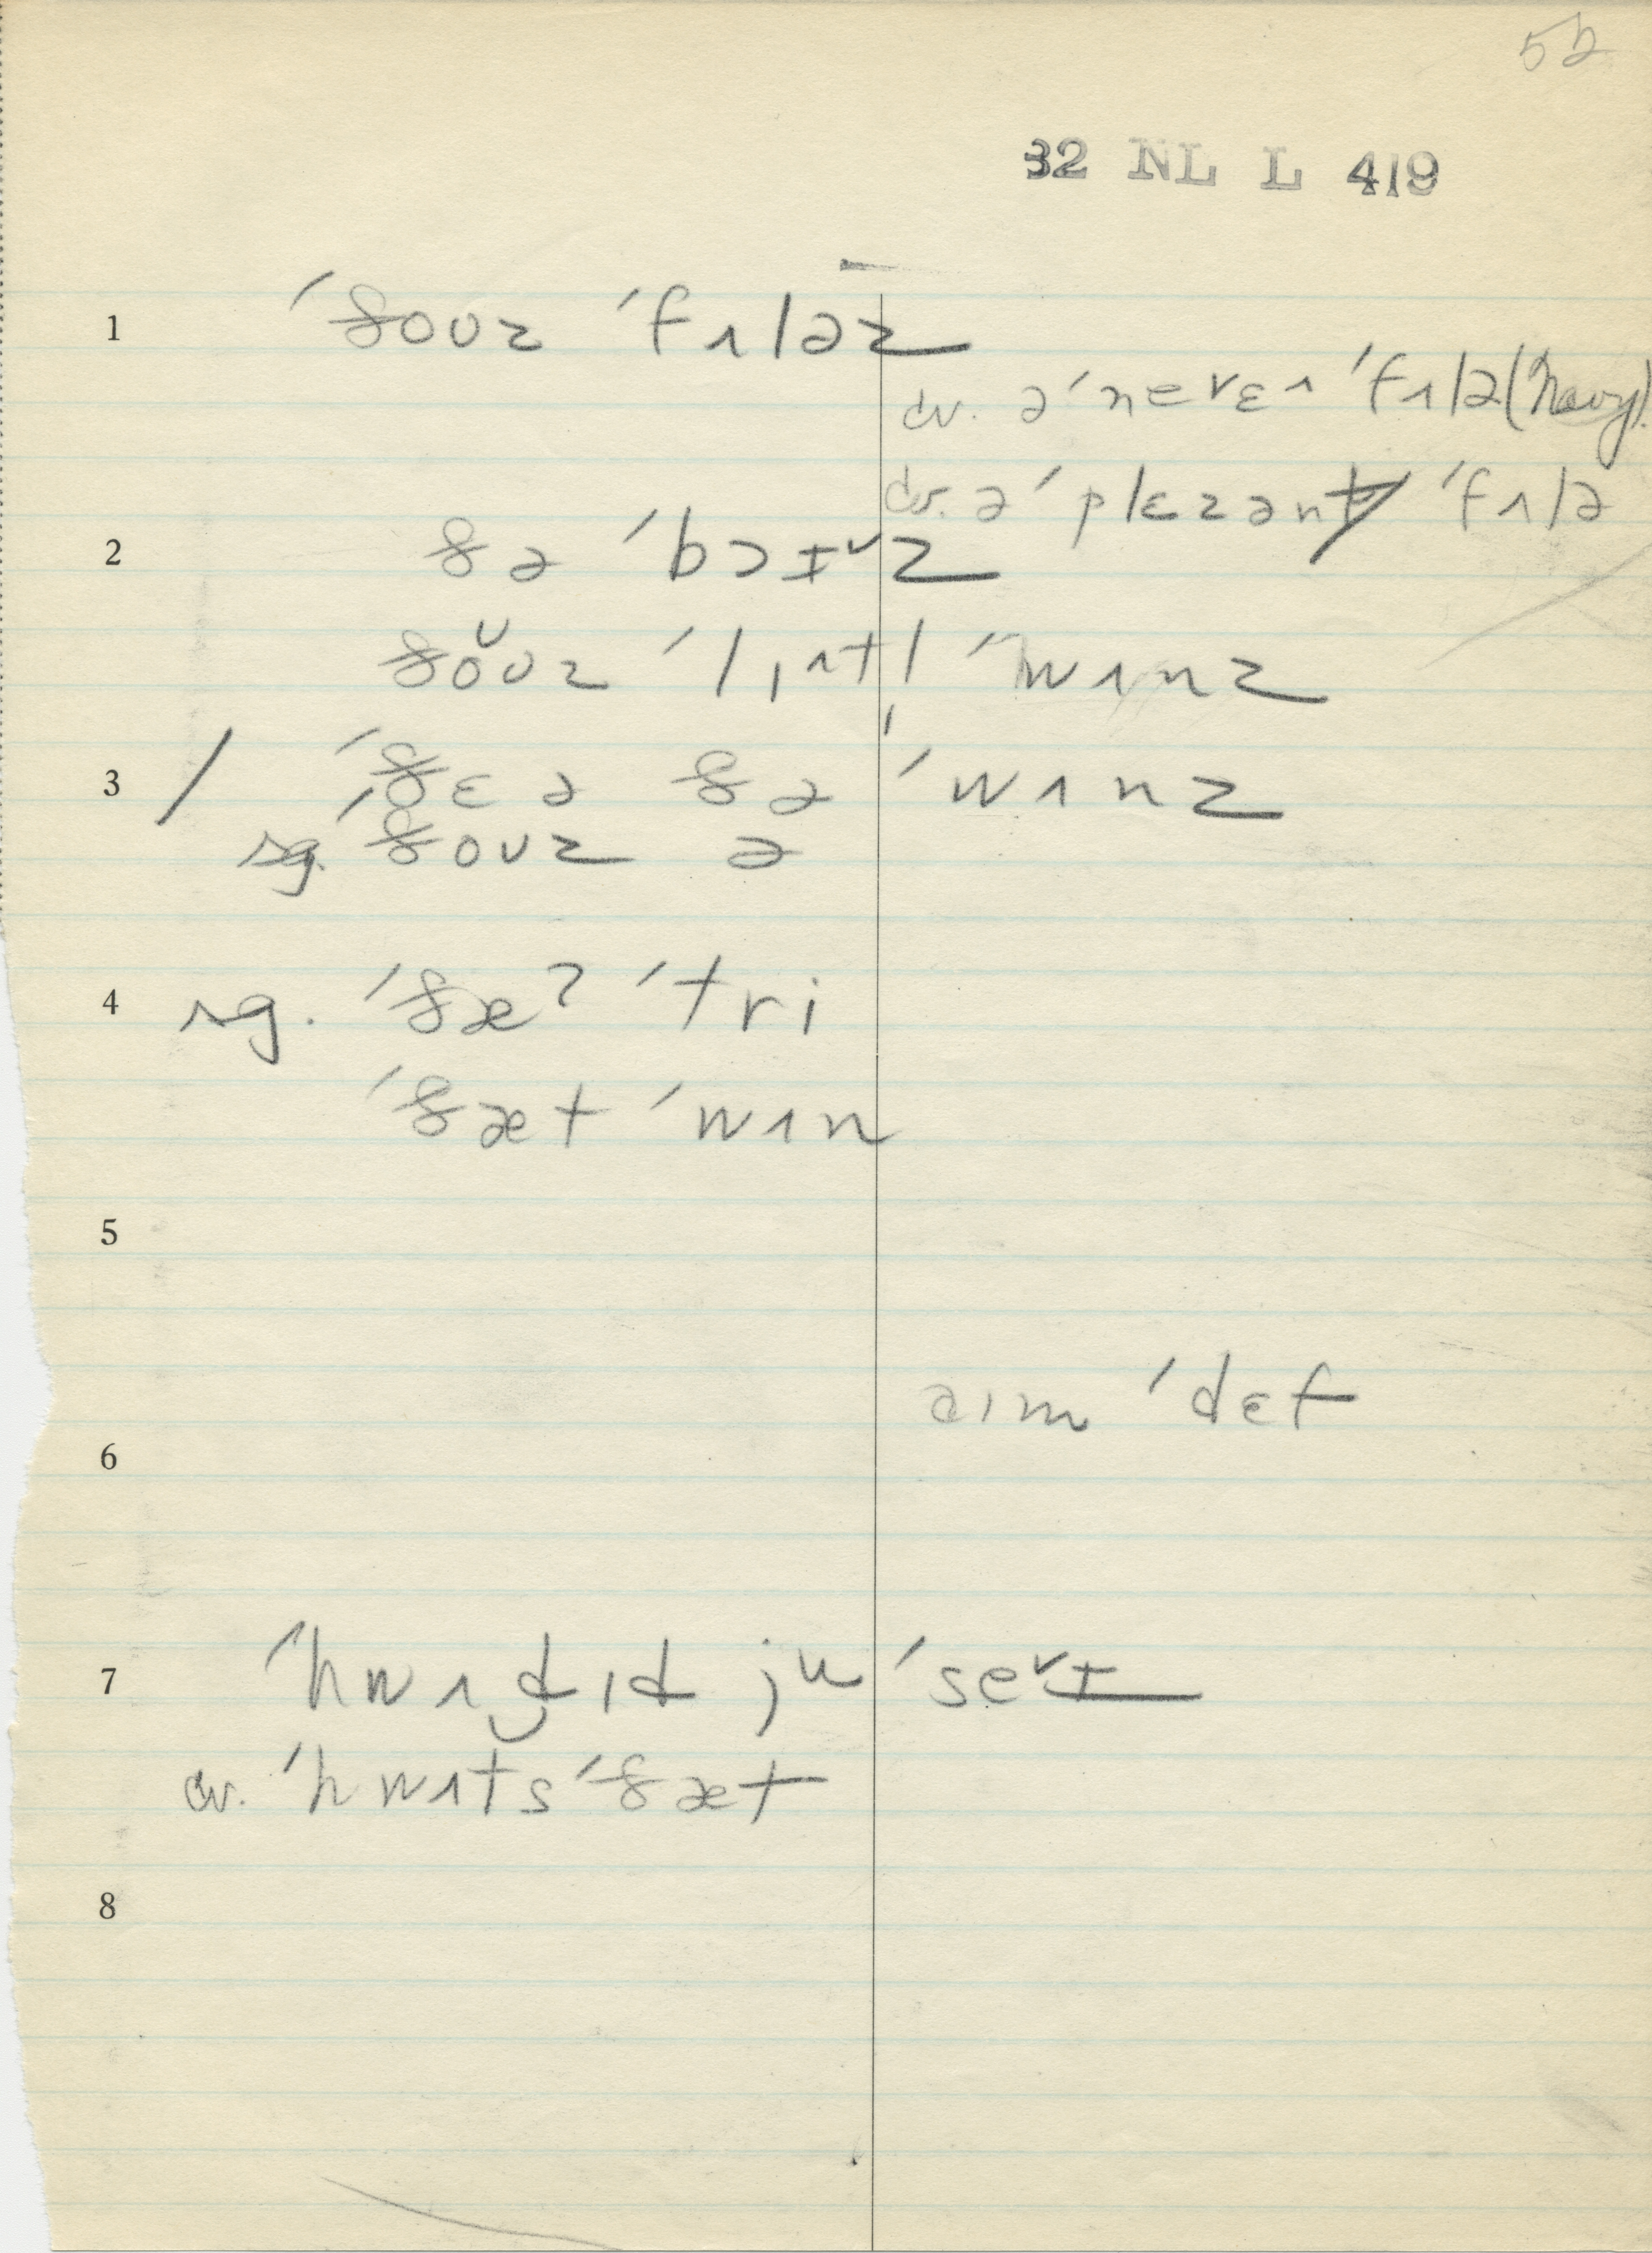 52
32 NL L 419
1 ˈðoʊz ˈfɪləz
cv. əˈneˇɛɪ ˈfɪlə (Navy).
cv. əˈplɛzənt ˈfɪlə
2 ðə ˈbɔɪˇz
ðoʊz ˈlɪtl̩ ˈwɪnz
3 / ˈðɛə ðə ˈwɪnz
sg. ˈðoʊz ə
4 sg. ˈðæʔ ˈtri
ˈðæt ˈwɪn
5
aɪm ˈdɛf
6
7 ˈhwɪd̬ɪd ju ˈseˇɪ
cv. ˈhwɪts ˈðæt
8